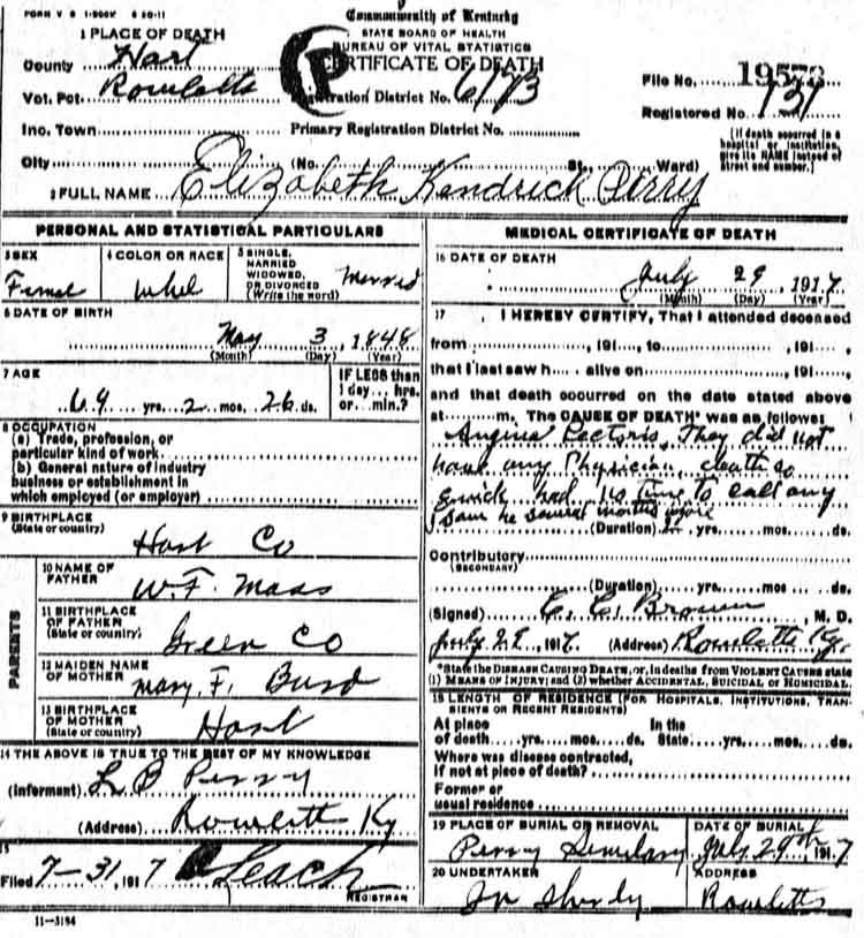 FORM V S 1-500K 6 20-11
Commonwealth of Kentucky
STATE BOARD OF HEALTH
BUREAU OF VITAL STATISTICS
CERTIFICATE OF DEATH
1 PLACE OF DEATH
County Hart
Vot. Pct. Rowletts
Registration District No. 6173
File No. 19573
Registered No. 121
Inc. Town
Primary Registration District No.
City (No. St., Ward)
(If death occurred in a hospital or institution, give its NAME instead of street and number.)
2 FULL NAME Elizabeth Kendrick Perry
PERSONAL AND STATISTICAL PARTICULARS
3 SEX
Femal
4 COLOR OR RACE
5 SINGLE, MARRIED WIDOWED, OR DIVORCED (Write the word)
Married
6 DATE OF BIRTH
May 3, 1848
(Month) (Day) (Year)
7 AGE
69 yrs. 2 mos. 26 ds.
IF LESS than 1 day... hrs. or... min.?
8 OCCUPATION
(a) Trade, profession, or particular kind of work
(b) General nature of industry business or establishment in which employed (or employer)
9 BIRTHPLACE
(State or country)
Hart Co
PARENTS
10 NAME OF FATHER
W. F. Moss
11 BIRTHPLACE OF FATHER
(State or country)
Green Co
12 MAIDEN NAME OF MOTHER
Mary. F. Burd
13 BIRTHPLACE OF MOTHER
(State or country)
Hart
14 THE ABOVE IS TRUE TO THE BEST OF MY KNOWLEDGE
(Informant) L B Perry
(Address) Rowlett Ky
15
Filed 7-31, 1917 Leach
REGISTRAR
11-3184
MEDICAL CERTIFICATE OF DEATH
16 DATE OF DEATH
July 29, 1917
(Month) (Day) (Year)
17 I HEREBY CERTIFY, That I attended deceased
from , 191 , to , 191 ,
that I last saw h alive on , 191 ,
and that death occurred on the date stated above
at m. The CAUSE OF DEATH* was as follows
Angina Pectoris, They did not
have any Physician, death so
quick had no time to call any
I saw he several months
(Duration) yrs. mos. ds.
Contributory
(SECONDARY)
(Duration) yrs. mos. ds.
(Signed) C. C. Brown, M. D.
July 29, 1917. (Address) Rowletts Ky.
*State the DISEASE CAUSING DEATH, or, in deaths from VIOLENT CAUSES state
(1) MEANS OF INJURY; and (2) whether ACCIDENTAL, SUICIDAL or HOMICIDAL.
18 LENGTH OF RESIDENCE (FOR HOSPITALS, INSTITUTIONS, TRANSIENTS OR RECENT RESIDENTS)
At place of death yrs. mos. ds. In the State yrs. mos. ds.
Where was disease contracted,
If not at place of death?
Former or
usual residence
19 PLACE OF BURIAL OR REMOVAL
Perry
DATE OF BURIAL
July 29th, 1917
20 UNDERTAKER
ADDRESS
Rowletts